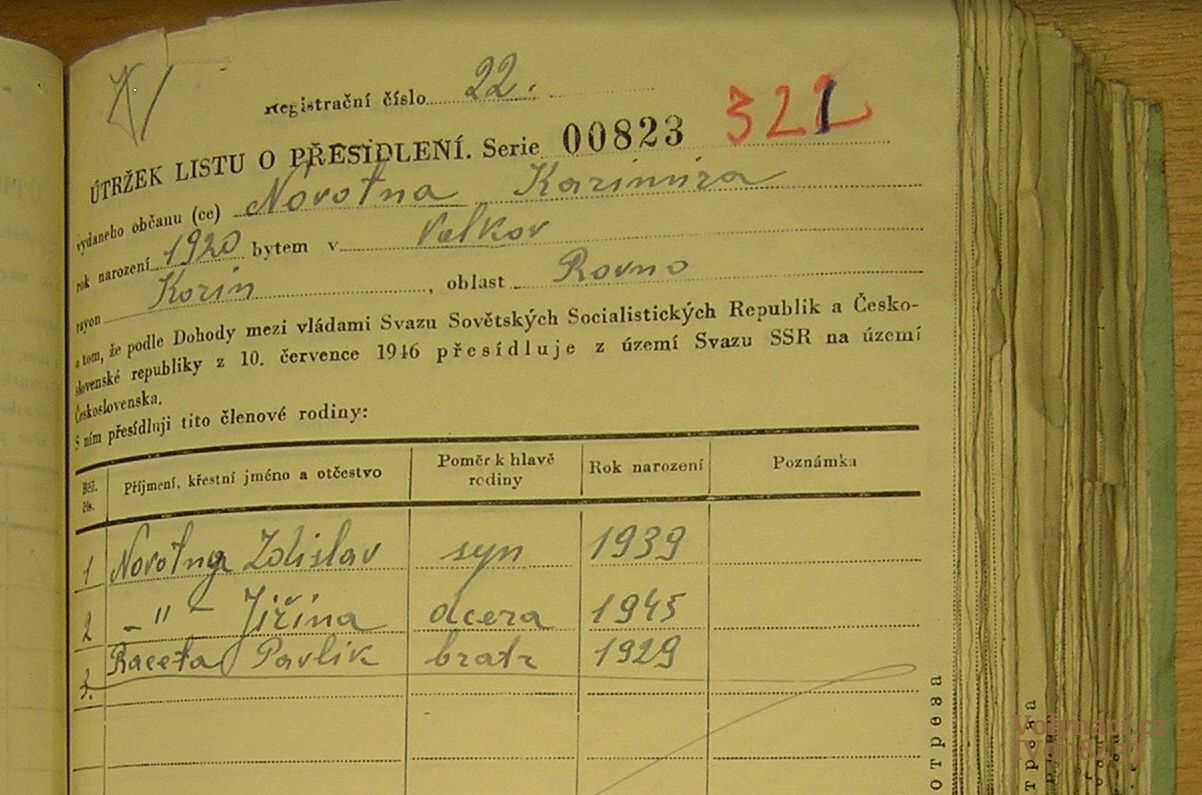 Registrační číslo 22.
322
ÚTRŽEK LISTU O PŘESIDLENÍ. Serie 00823
vydaného občanu (ce) Novotna Kazimira
rok narození 1920 bytem v Valkov
rayon Korin, oblast Rovno
o tom, že podle Dohody mezi vládami Svazu Sovětských Socialistických Republik a Česko-
slovenské republiky z 10. července 1946 přesídluje z území Svazu SSR na území
Československa.
S ním přesídluji tito členové rodiny:
Běž. čís. Příjmení, křestní jméno a otčestvo Poměr k hlavě rodiny Rok narození Poznámka
1 Novotny Zdislav syn 1939
2 - " - Jiřina dcera 1945
3. Raceta Pavlik bratr 1929
отреза